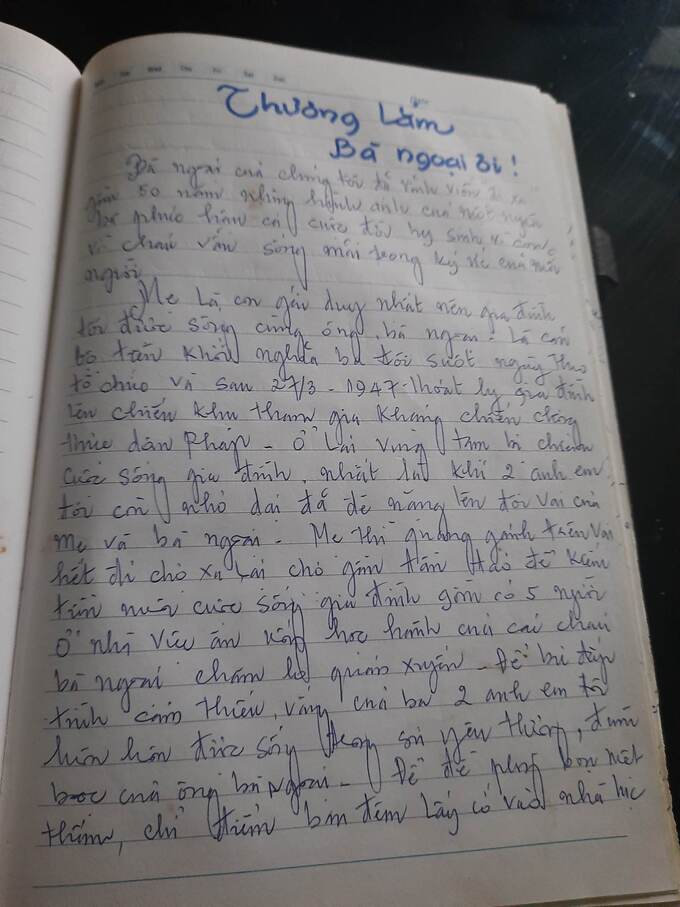 Thương Lắm
Bà ngoại ơi!
Bà ngoại của chúng tôi đã vĩnh viễn đi xa
gần 50 năm những hình ảnh của một người
phúc hậu cả cuộc đời hy sinh vì con
vì cháu vẫn sống mãi trong ký ức của mỗi
người.
Mẹ là con gái duy nhất nên gia đình
tôi được sống cùng ông, bà ngoại. Là cán
bộ tiền khởi nghĩa ba tôi suốt ngày theo
tổ chức và sau 27/3-1947 thoát ly gia đình
lên chiến khu tham gia kháng chiến chống
thực dân Pháp - Ở lại vùng tạm bị chiếm
cuộc sống gia đình, nhất là khi 2 anh em
tôi còn nhỏ dại đã đè nặng lên đôi vai của
mẹ và bà ngoại. Mẹ thì quang gánh trên vai
hết đi chợ xa lại chợ gần tần tảo để kiếm
tiền nuôi cuộc sống gia đình gồm có 5 người
Ở nhà việc ăn uống học hành của các cháu
bà ngoại chăm lo quán xuyến - Để bù đắp
tình cảm thiếu vắng của ba 2 anh em tôi
luôn luôn được sống trong sự yêu thương, đùm
bọc của ông bà ngoại - Để đề phòng bọn mật
thám, chỉ điểm ban đêm lấy cớ vào nhà lục